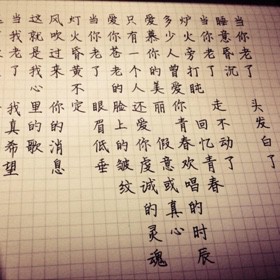 当你老了 头发白了
睡意昏沉
当你老了 走不动了
炉火旁打盹 回忆青春
多少人曾爱你 青春欢唱的时辰
爱慕你的美丽 假意或真心
只有一个人还爱你虔诚的灵魂
爱你苍老的脸上的皱纹
当你老了 眼眉低垂
灯火昏黄不定
风吹过来 你的消息
这就是我心里的歌
当我老了 我真希望